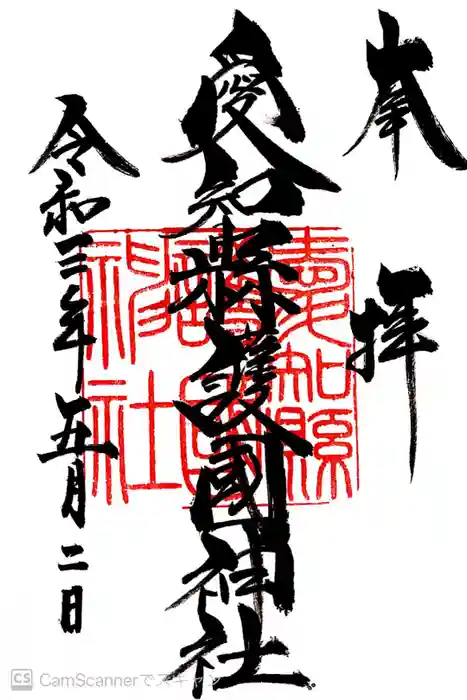 奉拝
愛知縣護國神社
愛知縣護國神社
令和三年五月二日
CS CamScannerでスキャン